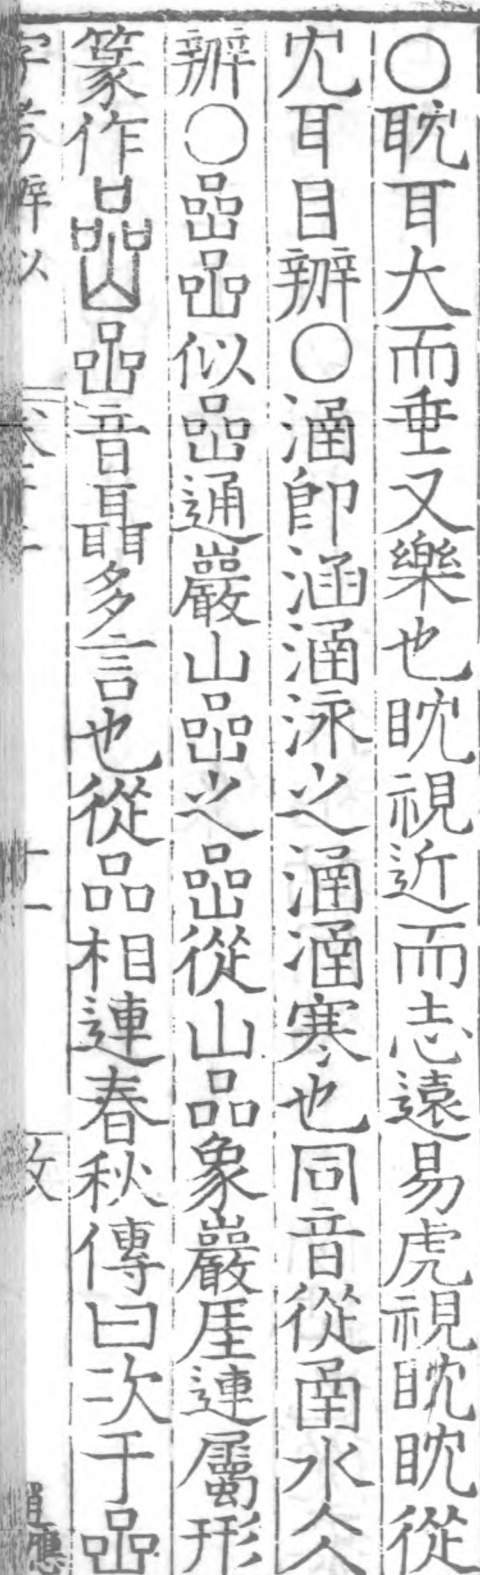 ○耽耳大而垂又樂也眈視近而志遠易虎視眈眈從
冘耳目辦○㴠卽涵㴠泳之㴠㴠寒也同音從圅水仌
辦○嵒喦似嵒通巖山嵒之嵒從山品象巖厓連屬形
篆作嵒喦音聶多言也從品相連春秋傳曰次于喦